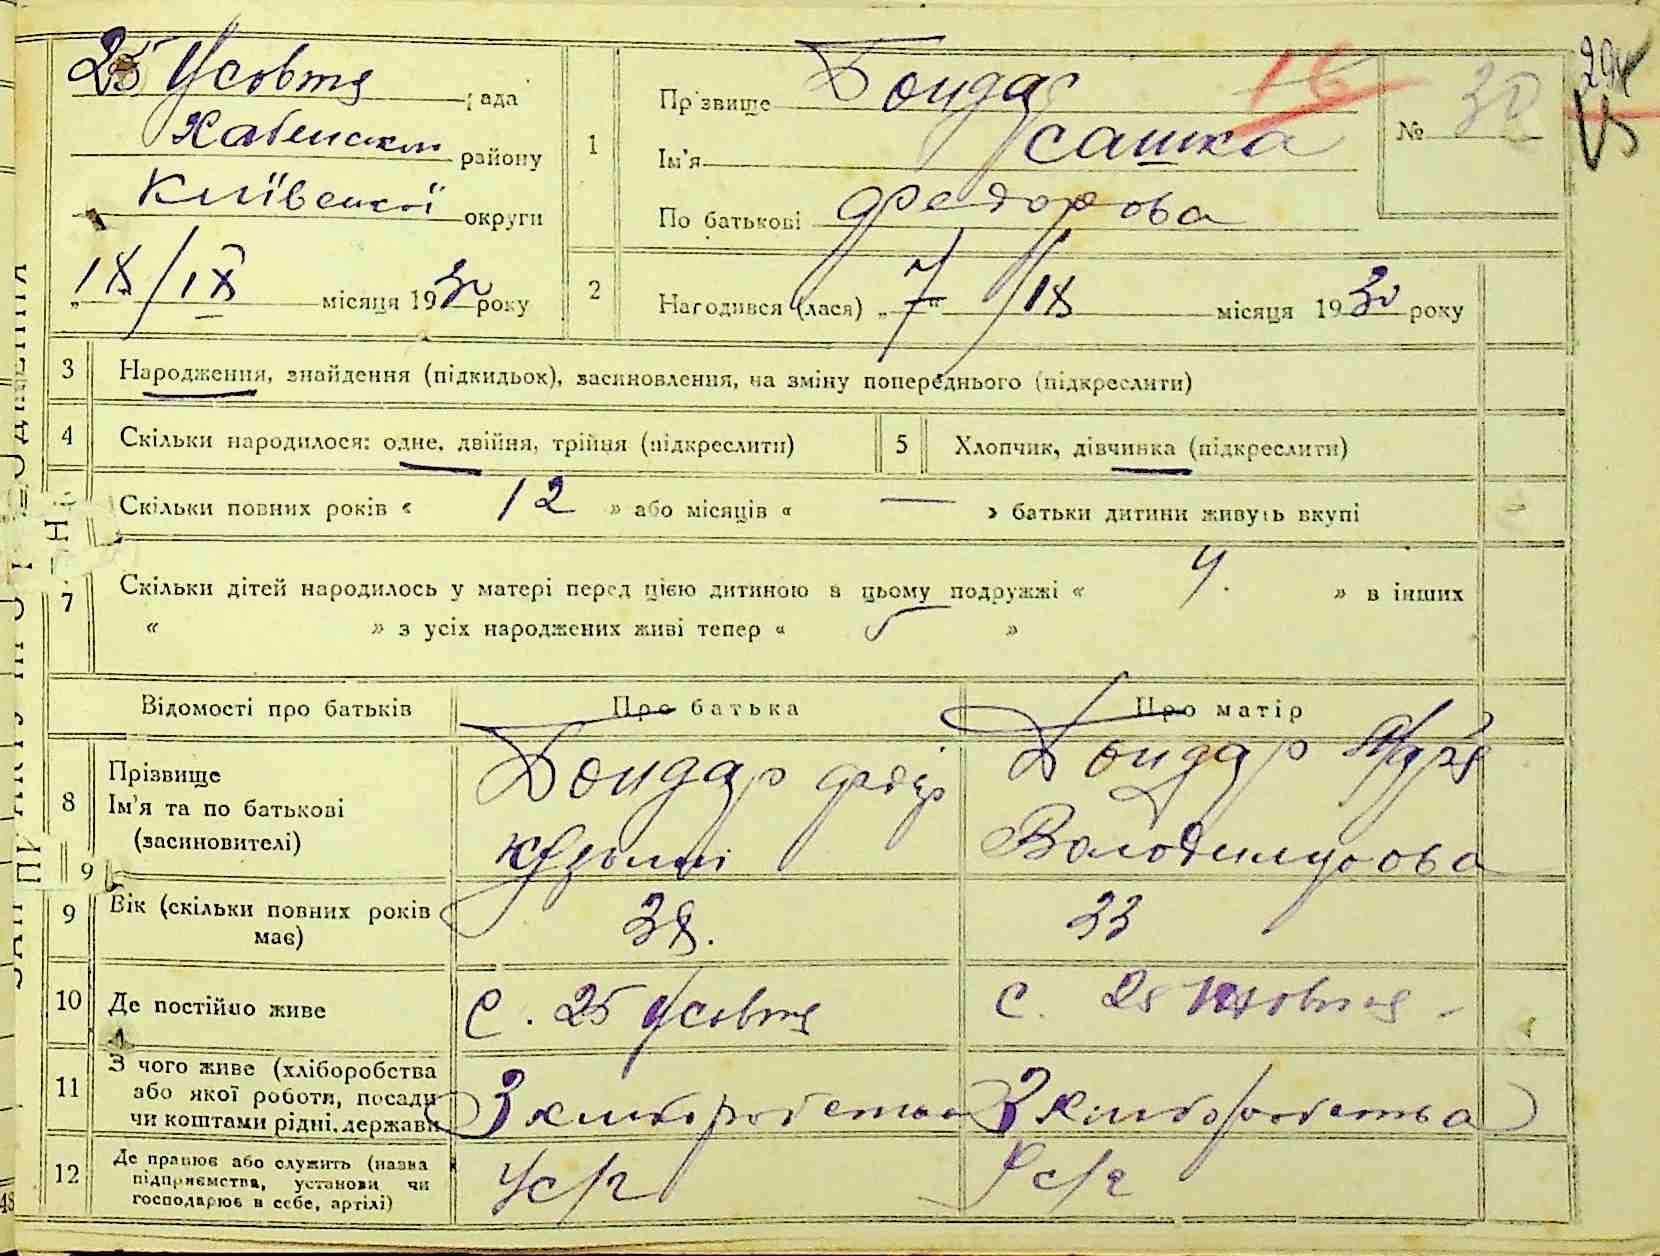 25 Жовтня рада
Хабенськ району
Київської округи
„18/IX місяця 1930 року
1
Прізвище Бондар
Ім'я Сашка
По батькові Федорова
16
№ 30
29
2
Народився (лася) „7“ /IX місяця 1930 року
3 Народження, знайдення (підкидьок), засиновлення, на зміну попереднього (підкреслити)
4 Скільки народилося: одне, двійня, трійня (підкреслити)
5 Хлопчик, дівчинка (підкреслити)
Скільки повних років « 12 » або місяців « — » батьки дитини живуть вкупі
7 Скільки дітей народилось у матері перед цією дитиною в цьому подружжі « 4. » в інших
« » з усіх народжених живі тепер « 5 »
Відомості про батьків Про батька Про матір
8 Прізвище
Ім'я та по батькові
(засиновителі)
Бондар Федір
Бондар
Володимирова
9
9 Вік (скільки повних років має) 38. 33
10 Де постійно живе с. 25 Жовтня с. 25 Жовтня
11 З чого живе (хліборобства
або якої роботи, посади
чи коштами рідні, держави
З хліборобства З хліборобства
12 Де працює або служить (назва
підприємства, установи чи
господарює в себе, артілі)
Ус/г Ус/г